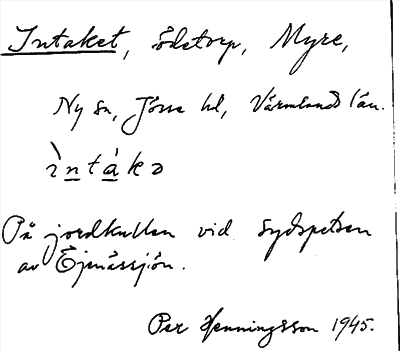 Intaket, ödetorp, Myre,
Ny sn, Jösse hd, Värmlands län.
ìntákə
På jordkullen vid sydspetsen
av Ejenässjön.
Per Henningsson 1945.